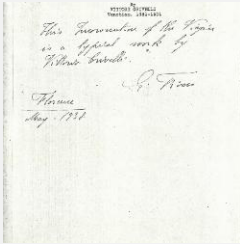 By
VITTORIO CRIVELLI
Venetian,
This Incoronation of the Virgin
is a typical work by
Vittorio Crivelli.
Florence
May - 1938